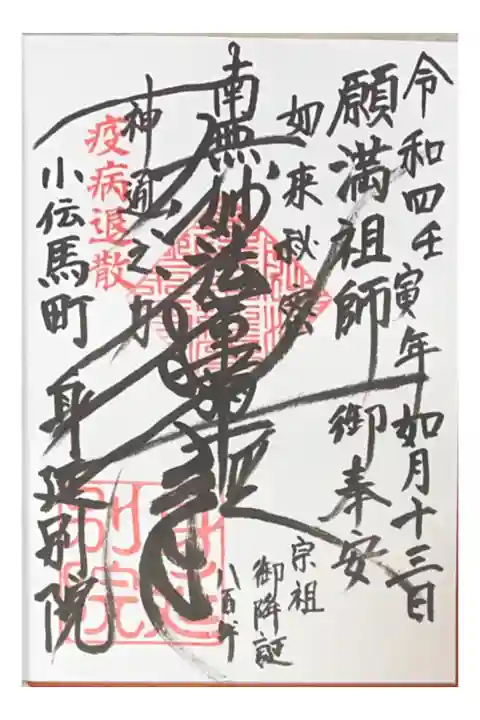 令和四壬寅年如月十三日
願満祖師御奉安
如来秘密
宗祖
御降誕
八百年
南無妙法蓮華経
神通之力
疫病退散
小伝馬町身延別院
身延
別院